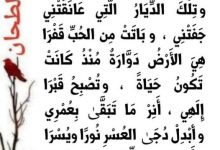 وتِلكَ الدِّيَارُ الَّتِي عَانَقَتْنِي
جَفَتْنِي , وَبَاتَتْ مِنَ الحُبِّ قَفْرَا
هِيَ الأَرْضُ دَوَّارَةٌ مُنْذُ كَانَتْ
تَهِيجُ حَيَاةً , وَتُصْبِحُ قَبْرَا
إِلَهِي , أَنِرْ مَا تَبَقَّى بِعُمْرِي
وَأَبْدِلْ دُجَى العُسْرِ نُورًا وَيُسْرَا
الطحان